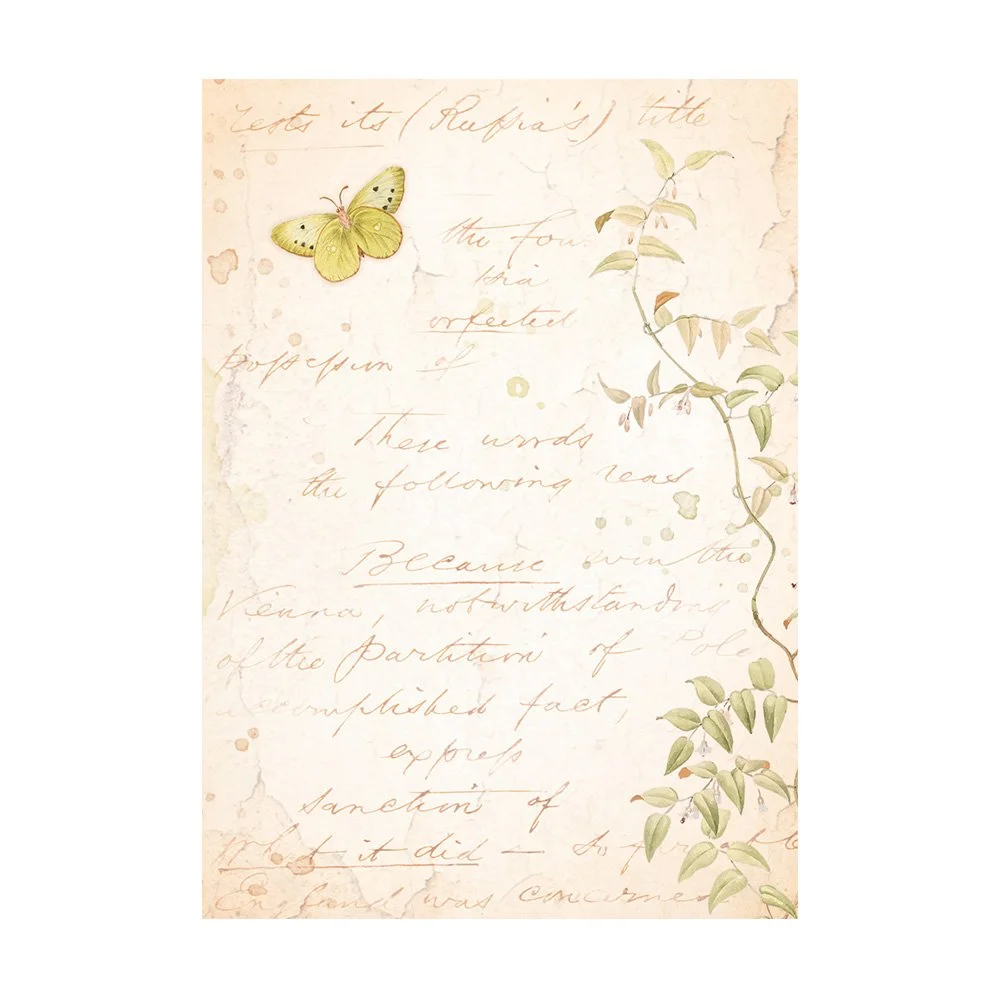 rests its (Russia's) title
the four
sia
orfected
possession of
These words
the following reas
Because the
Vienna, notwithstanding
of the partition of Pole
accomplished fact,
express
sanction of
What it did — so far
England was concerned